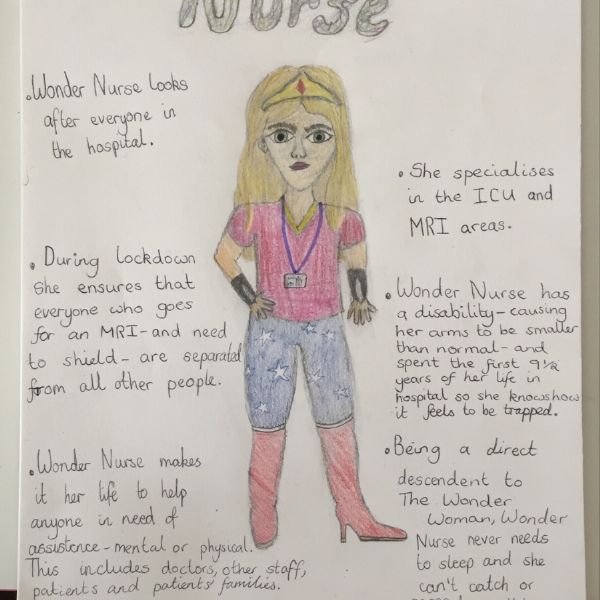 Nurse
• Wonder Nurse looks
after everyone in
the hospital.
• During lockdown
she ensures that
everyone who goes
for an MRI - and need
to shield - are separated
from all other people.
• Wonder Nurse makes
it her life to help
anyone in need of
assistence - mental or physical.
This includes doctors, other staff,
patients and patients' families.
• She specialises
in the ICU and
MRI areas.
• Wonder Nurse has
a disability - causing
her arms to be smaller
than normal - and
spent the first 9½
years of her life in
hospital so she knows how
it feels to be trapped.
• Being a direct
descendent to
The Wonder
Woman, Wonder
Nurse never needs
to sleep and she
can't catch or